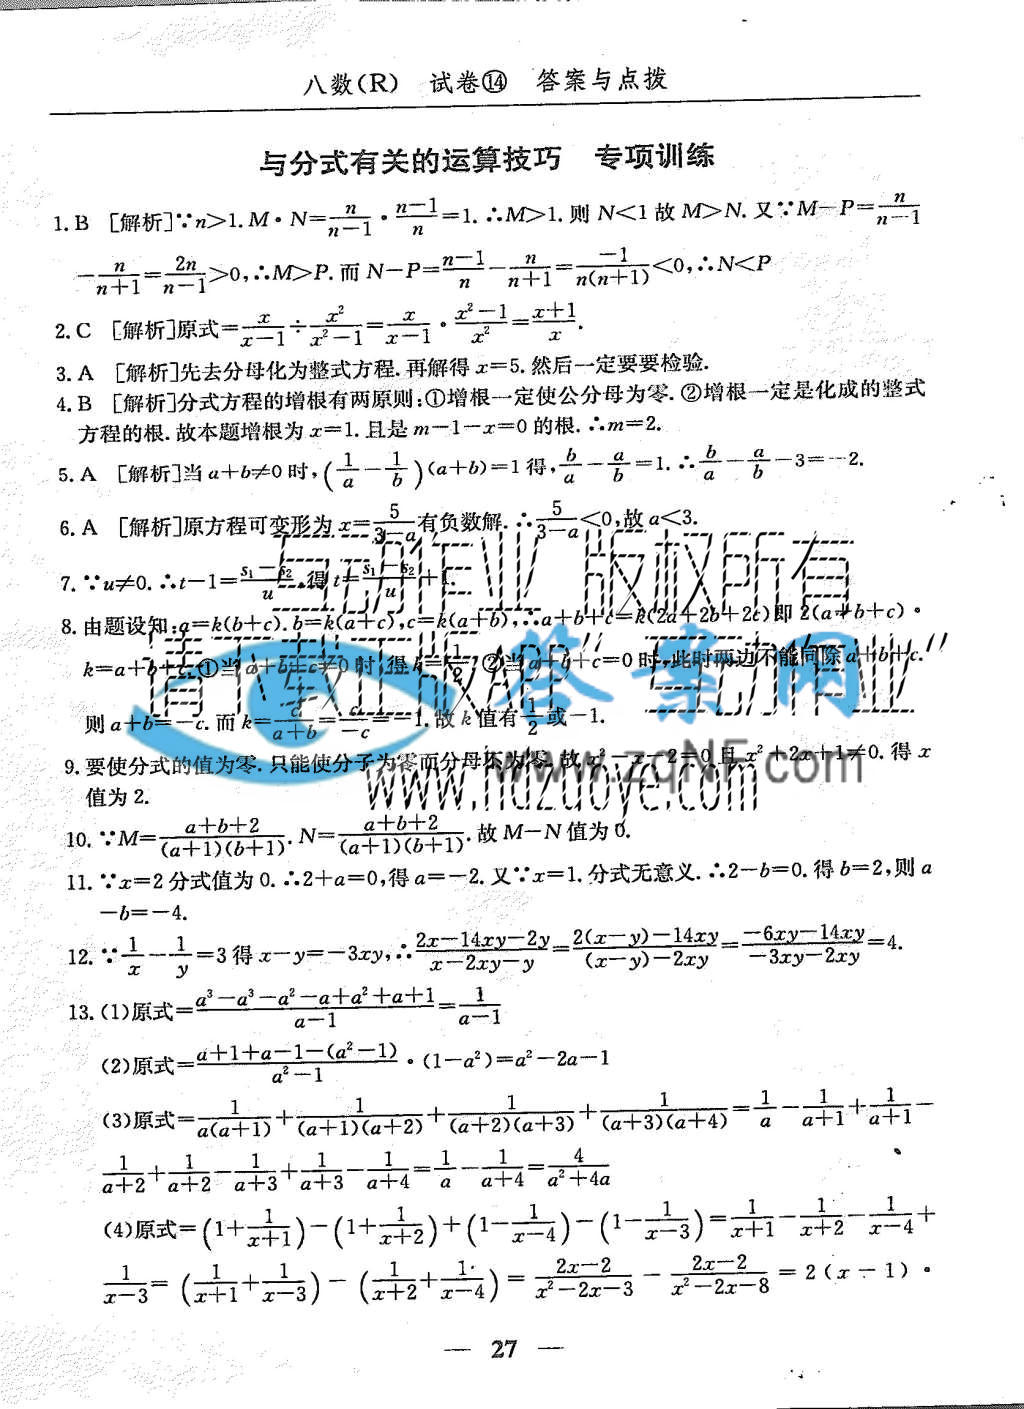 八数(R) 试卷⑭ 答案与点拨
与分式有关的运算技巧 专项训练
1. B [解析]∵n>1. M·N=n/(n-1)·(n-1)/n=1. ∴M>1. 则 N<1 故 M>N. 又∵M-P=n/(n-1)
-n/(n+1)=2n/(n-1)>0,∴M>P. 而 N-P=(n-1)/n-n/(n+1)=-1/(n(n+1))<0,∴N<P
2. C [解析]原式=x/(x-1)÷x²/(x²-1)=x/(x-1)·(x²-1)/x²=(x+1)/x.
3. A [解析]先去分母化为整式方程. 再解得 x=5. 然后一定要要检验.
4. B [解析]分式方程的增根有两原则:①增根一定使公分母为零. ②增根一定是化成的整式
方程的根. 故本题增根为 x=1. 且是 m-1-x=0 的根. ∴m=2.
5. A [解析]当 a+b≠0 时,(1/a-1/b)(a+b)=1 得, b/a-a/b=1. ∴b/a-a/b-3=-2.
6. A [解析]原方程可变形为 x=5/(3-a)有负数解. ∴5/(3-a)<0,故 a<3.
7. ∵u≠0. ∴t-1=(s₁-s₂)/u. 得 t=(s₁-s₂)/u+1.
8. 由题设知:a=k(b+c). b=k(a+c),c=k(a+b),∴a+b+c=k(2a+2b+2c)即 2(a+b+c)·
k=a+b+c. ①当 a+b+c≠0 时, 得 k=1/2, ②当 a+b+c=0 时,此时两边不能同除 a+b+c.
则 a+b=-c. 而 k=c/(a+b)=c/-c=-1. 故 k 值有1/2或-1.
9. 要使分式的值为零. 只能使分子为零而分母不为零. 故 x²-x-2=0 且 x²+2x+1≠0. 得 x
值为 2.
10. ∵M=(a+b+2)/((a+1)(b+1)). N=(a+b+2)/((a+1)(b+1)). 故 M-N 值为 0.
11. ∵x=2 分式值为 0. ∴2+a=0,得 a=-2. 又∵x=1. 分式无意义. ∴2-b=0. 得 b=2,则 a
-b=-4.
12. ∵1/x-1/y=3 得 x-y=-3xy,∴(2x-14xy-2y)/(x-2xy-y)=(2(x-y)-14xy)/((x-y)-2xy)=(-6xy-14xy)/(-3xy-2xy)=4.
13. (1)原式=(a³-a³-a²-a+a²+a+1)/(a-1)=1/(a-1)
(2)原式=(a+1+a-1-(a²-1))/(a²-1)·(1-a²)=a²-2a-1
(3)原式=1/(a(a+1))+1/((a+1)(a+2))+1/((a+2)(a+3))+1/((a+3)(a+4))=1/a-1/(a+1)+1/(a+1)-
1/(a+2)+1/(a+2)-1/(a+3)+1/(a+3)-1/(a+4)=1/a-1/(a+4)=4/(a²+4a)
(4)原式=(1+1/(x+1))-(1+1/(x+2))+(1-1/(x-4))-(1-1/(x-3))=1/(x+1)-1/(x+2)-1/(x-4)+
1/(x-3)=(1/(x+1)+1/(x-3))-(1/(x+2)+1/(x-4))=(2x-2)/(x²-2x-3)-(2x-2)/(x²-2x-8)=2(x-1)·
— 27 —
互动作业 版权所有
请下载正版APP "互动作业"
www.hdzuoye.com
答案网
www.zqNF.com